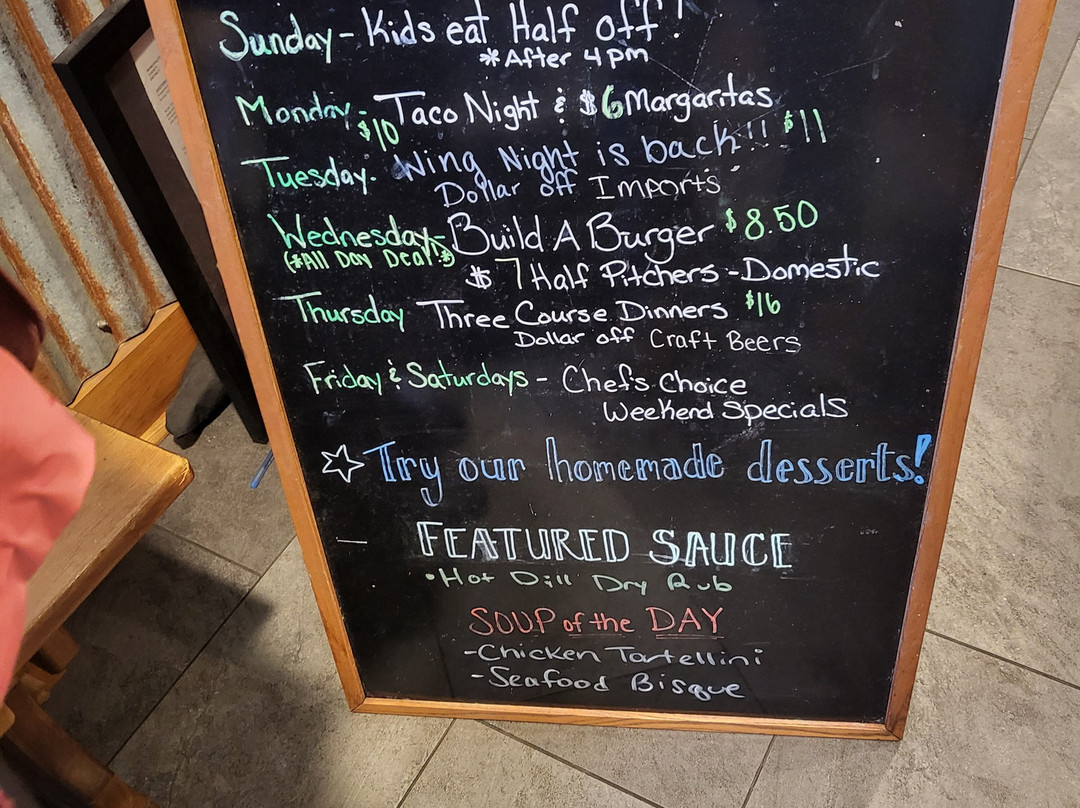 Sunday - Kids eat Half off!
*After 4pm
Monday - Taco Night & $6 Margaritas
$10
Tuesday - Wing Night is back!! $11
Dollar off Imports
Wednesday - Build A Burger $8.50
(*All Day Deal*)
$7 Half Pitchers - Domestic
Thursday Three Course Dinners $16
Dollar off Craft Beers
Friday & Saturdays - Chefs Choice
Weekend Specials
☆ Try our homemade desserts!
FEATURED SAUCE
• Hot Dill Dry Rub
SOUP of the DAY
- Chicken Tortellini
- Seafood Bisque